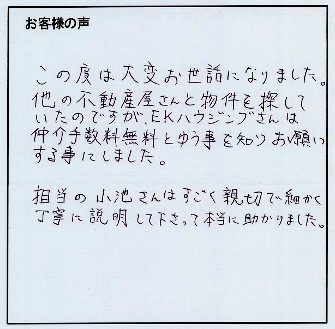 お客様の声
この度は大変お世話になりました。
他の不動産屋さんと物件を探して
いたのですが、EKハウジングさんは
仲介手数料無料とゆう事を知りお願い
する事にしました。
担当の小池さんはすごく親切で細かく
丁寧に説明して下さって本当に助かりました。